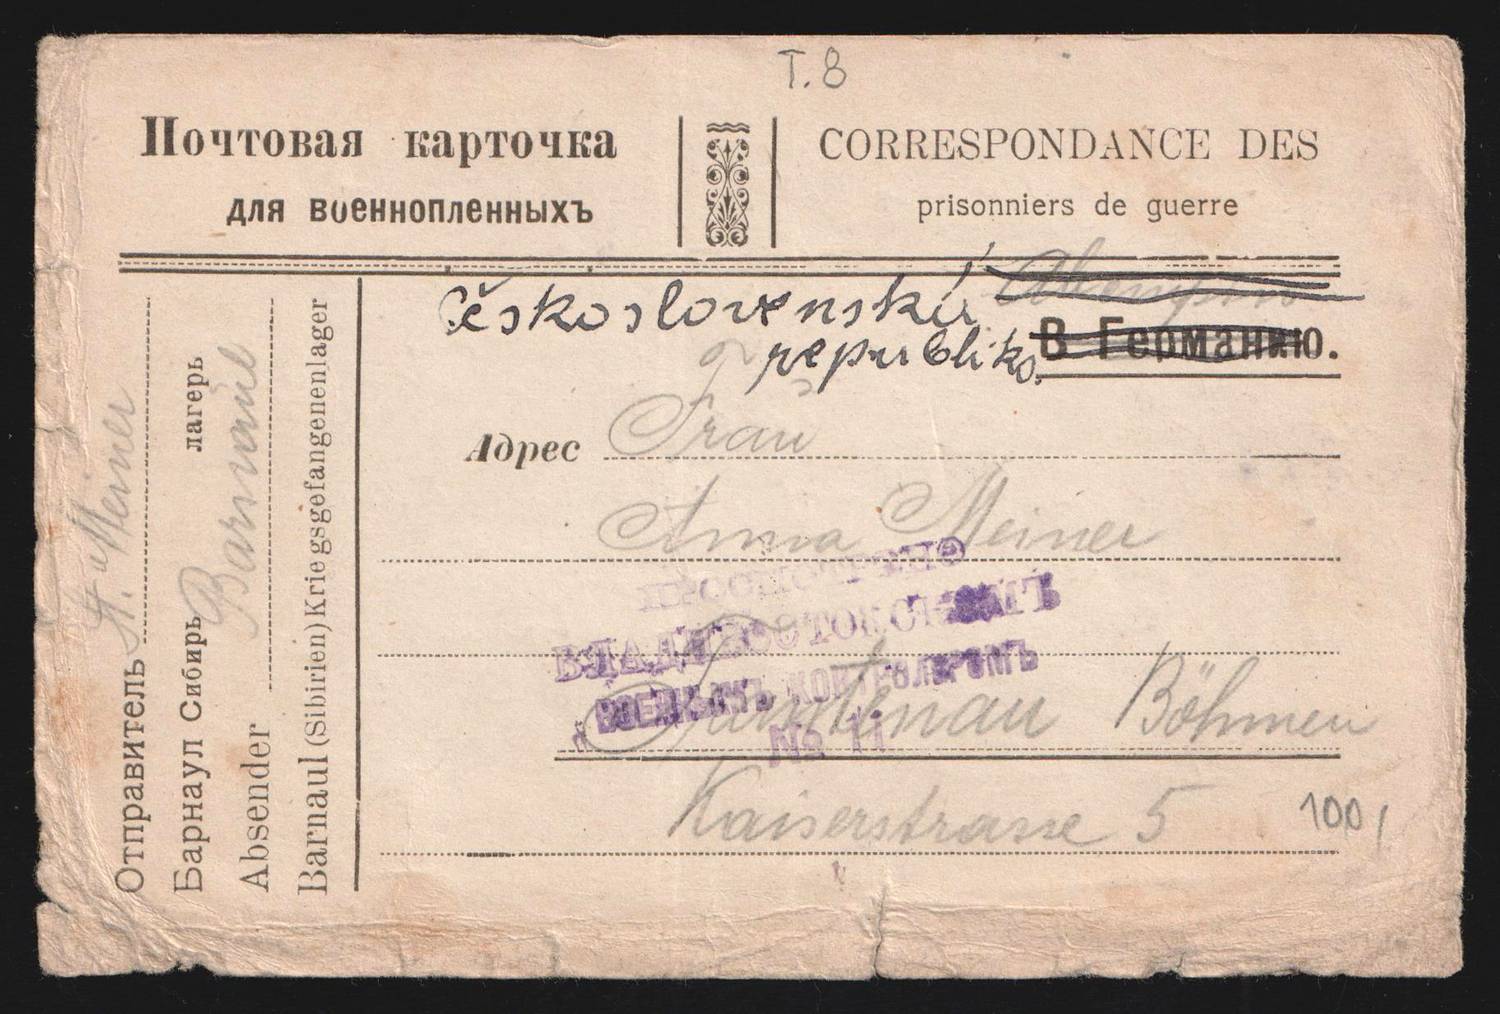 T. 8
Почтовая карточка
для военноплѣнныхъ
CORRESPONDANCE DES
prisonniers de guerre
Československá
republika.
В Германию.
Адрес Frau
Anna Meiner
ПРОСМОТРЕНО
ВЛАДИВОСТОКСКИМЪ
ВОЕННЫМЪ КОНТРОЛЕРОМЪ
№ 11
Trautenau Böhmen
Kaiserstrasse 5
100,
Отправитель A. Meiner
Барнаул Сибирь лагерь
Absender Barnaul
Barnaul (Sibirien) Kriegsgefangenenlager